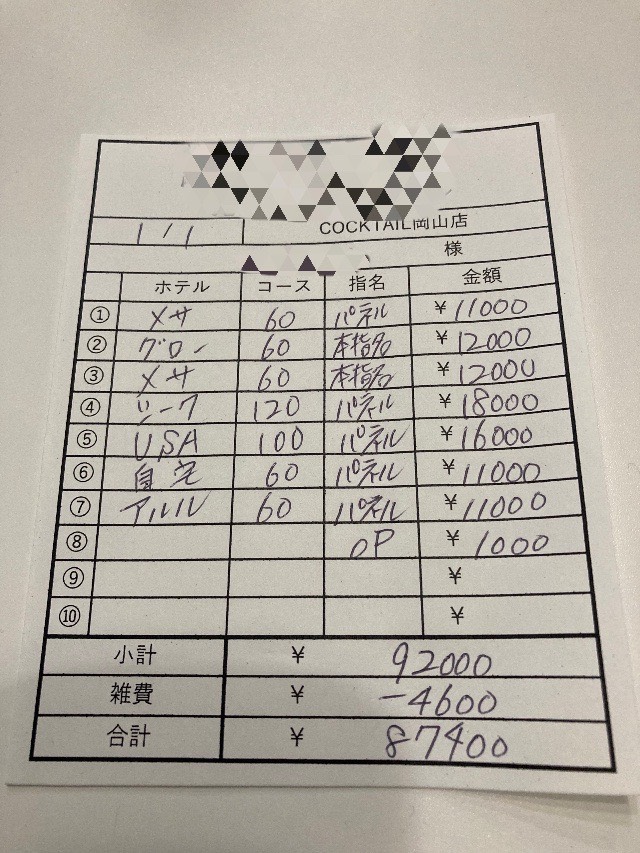 COCKTAIL岡山店
1/1
様
ホテル コース 指名 金額
① メサ 60 パネル ¥11000
② グロー 60 本指名 ¥12000
③ メサ 60 本指名 ¥12000
④ シーク 120 パネル ¥18000
⑤ USA 100 パネル ¥16000
⑥ 自宅 60 パネル ¥11000
⑦ アルル 60 パネル ¥11000
⑧ OP ¥1000
⑨ ¥
⑩ ¥
小計 ¥ 92000
雑費 ¥ -4600
合計 ¥ 87400